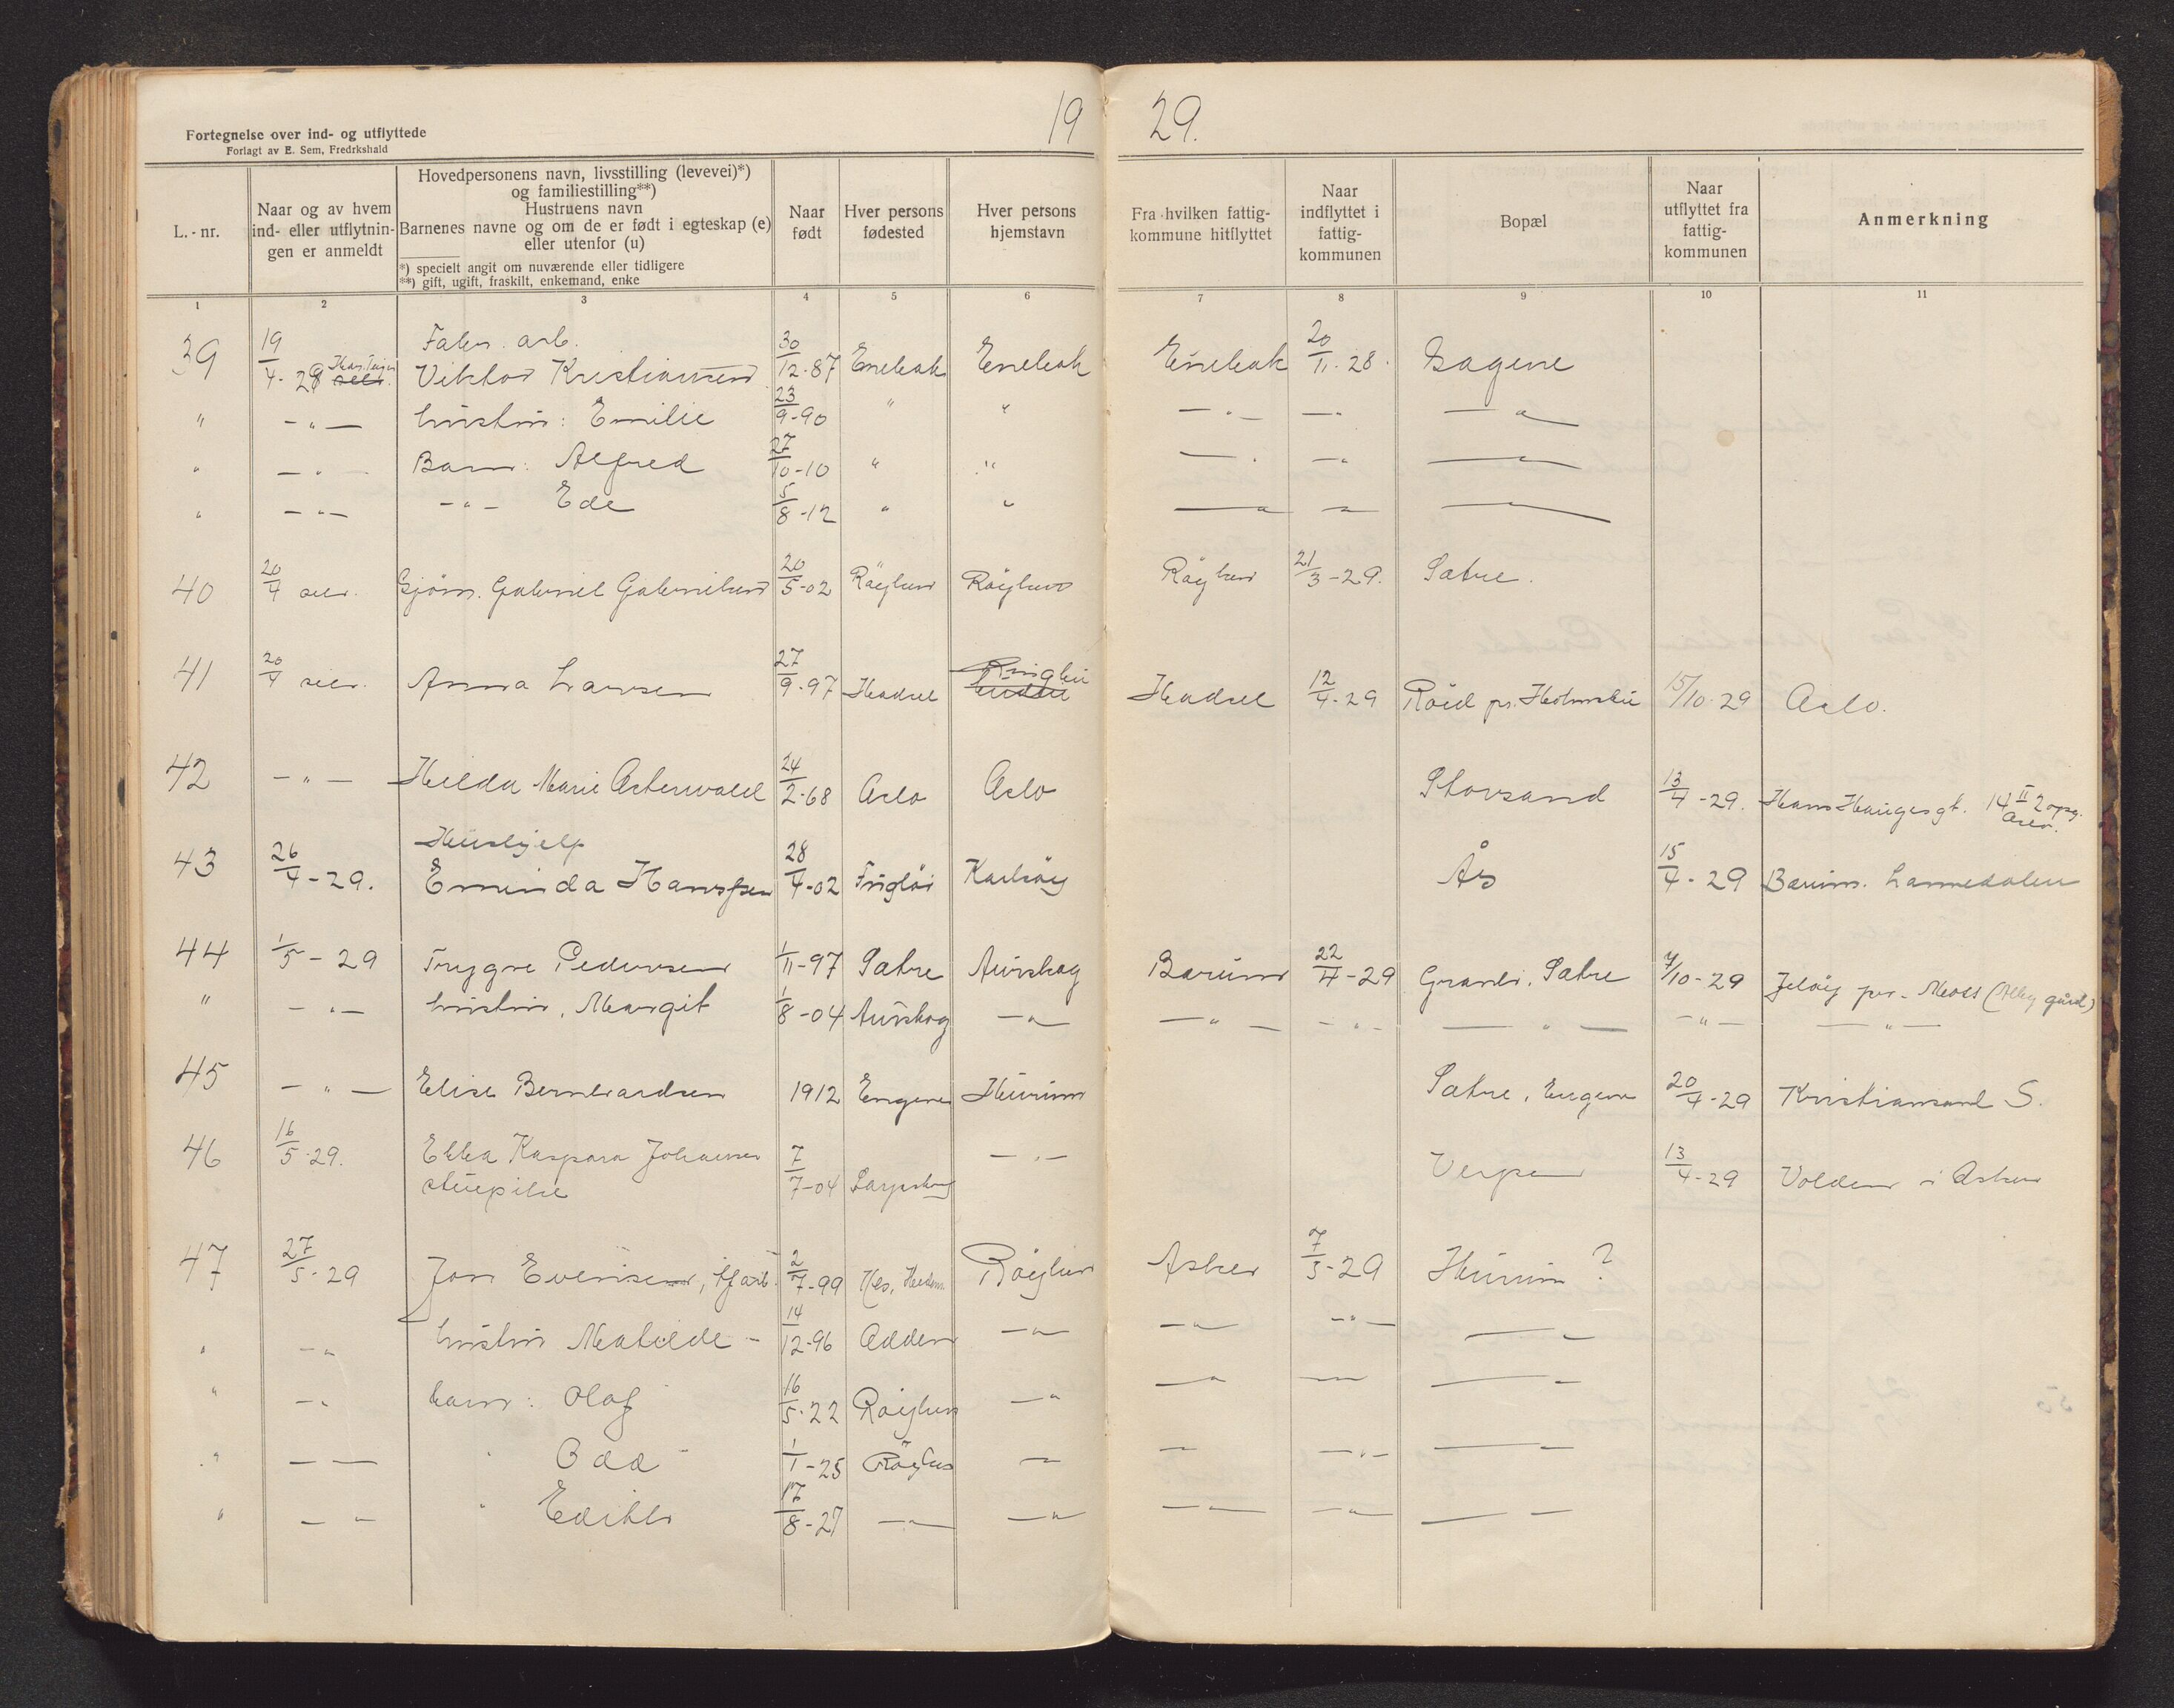 19 29.
Fortegnelse over ind- og utflyttede
Forlagt av E. Sem, Fredrkshald
L.-nr.
Naar og av hvem
ind- eller utflytnin-
gen er anmeldt
Hovedpersonens navn, livsstilling (levevei)*)
og familiestilling**)
Hustruens navn
Barnenes navne og om de er født i egteskap (e)
eller utenfor (u)
*) specielt angit om nuværende eller tidligere
**) gift, ugift, fraskilt, enkemand, enke
Naar
født
Hver persons
fødested
Hver persons
hjemstavn
Fra hvilken fattig-
kommune hitflyttet
Naar
indflyttet i
fattig-
kommunen
Bopæl
Naar
utflyttet fra
fattig-
kommunen
Anmerkning
1 2 3 4 5 6 7 8 9 10 11
Fabr. arb.
39 19/4-29 Viktor Kristiansen 30/12-87 Enebak Enebak Enebak 20/11-28. Bagene
" -"- hustru: Emilie 23/9-90 " " -"- -" -"
" -"- Barn: Alfred 27/10-10 " " -" -" -"
" -"- -"- Ede 5/8-12 " " -" -" -"
40 20/4 Gjörm. Gabriel Gabrielsen 20/5-02 Röyken Röyken Röyken 21/3-29. Sætre.
41 20/4 Anna Larsen 27/9-97 Hadsel Hadsel 12/4-29 Röed pr. Holmsbu 15/10-29 Oslo.
42 -"- Hilda Marie Osterwald 24/2-68 Oslo Oslo Storsand 13/4-29. Hans Haugesgt. 14 II 2 opg. Oslo.
Hushjelp
43 26/4-29. Eminda Hansen 28/4-02 Karlsöy Ås 15/4-29 Bærum. Lommedalen
44 1/5-29 Trygve Pedersen 1/11-97 Sætre Aurskog Bærum 22/4-29 Granli, Sætre 4/10-29 Jelöy pr. Moss (Alby gård)
" -"- hustru, Margit 1/8-04 Aurskog -" -"- -"- -"- -"- -"-
45 -"- Elise Bernhardsen 1912 Engene Hurum Sætre, Engene 20/4-29 Kristiansand S.
46 16/5-29. Ebba Kaspara Johansen 7/7-04 Sarpsborg -"- Verpen 13/4-29 Volden i Asker
stuepike
47 27/5-29 Jon Evensen, 2/7-99 Nes, Hedem. Röyken Asker 7/3-29 Hurum ?
" -" hustru Matilde - 14/12-96 Odden -" -" -"- -"
" -" barn: Olaf 16/5-22 Röyken -" -" - -
" -- " Odd 1/1-25 Röyken - - -"- -
" -" " Edith 17/8-27 -" -" -"- -" -